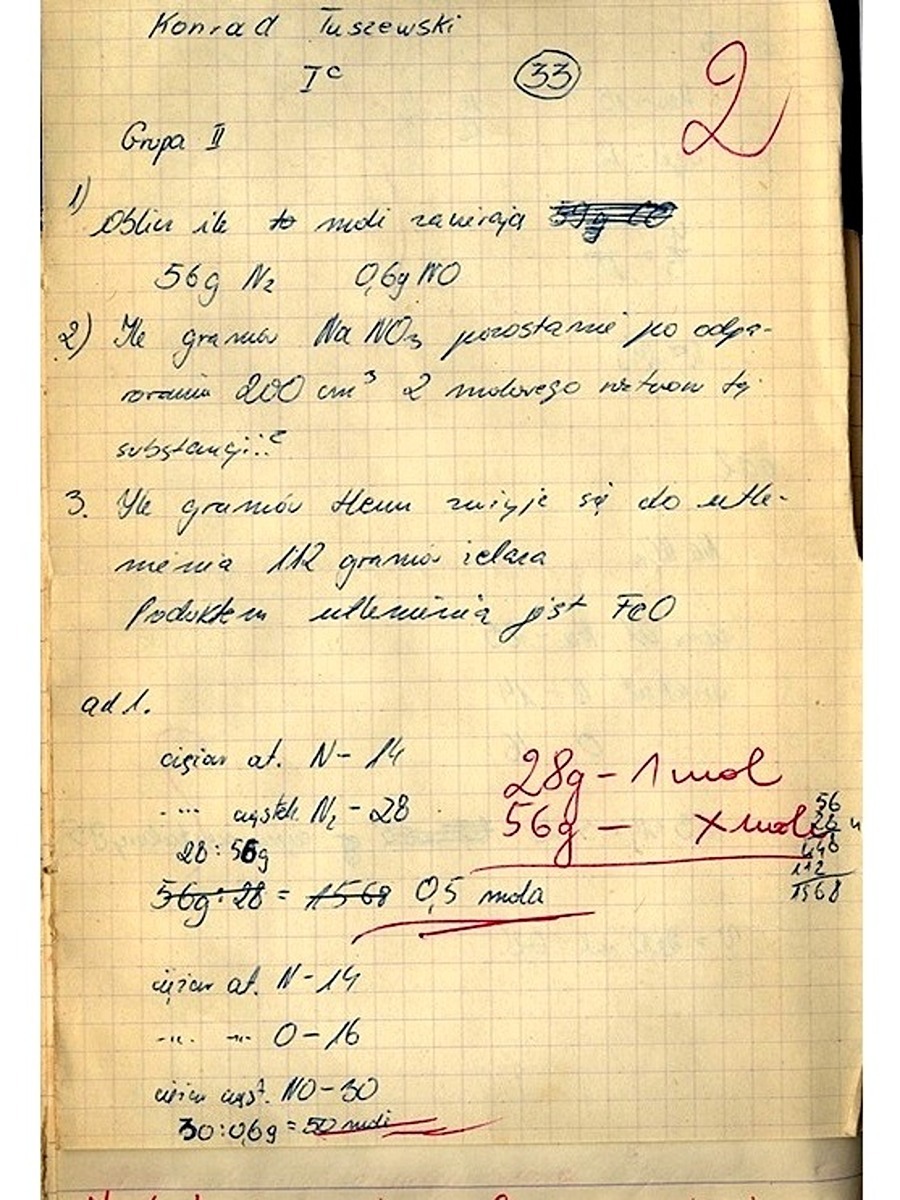 Konrad Tuszewski
I c 33
2
Grupa II
1)
Oblicz ile to moli zawierają
56g N2 0,6g NO
2) Ile gramów NaNO3 pozostanie po odpa-
rowaniu 200 cm3 2 molowego roztworu tej
substancji?
3. Ile gramów tlenu zużyje się do utle-
nienia 112 gramów żelaza
Produktem utlenienia jest FeO
ad 1.
ciężar at. N - 14
28g - 1 mol
-"- cząstek N2 - 28
56g - X moli
28 : 56g
56g : 28 = 1568 0,5 mola
56
28
448
112
1568
ciężar at. N - 14
-"- -"- O - 16
ciężar cząst. NO - 30
30 : 0,6g = 50 moli